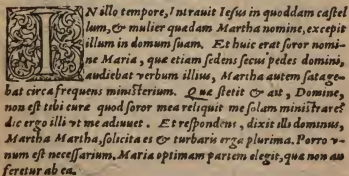 IN illo tempore, Intrauit Iesus in quoddam castel
lum, & mulier quædam Martha nomine, excepit
illum in domum suam. Et huic erat soror nomi-
ne Maria, quæ etiam sedens secus pedes domini,
audiebat verbum illius, Martha autem satage-
bat circa frequens ministerium. Quæ stetit & ait, Domine,
non est tibi curæ quod soror mea reliquit me solam ministrare?
dic ergo illi vt me adiuuet. Et respondens, dixit illi dominus,
Martha Martha, solicita es & turbaris erga plurima. Porro v-
num est necessarium, Maria optimam partem elegit, quæ non au
feretur ab ea.